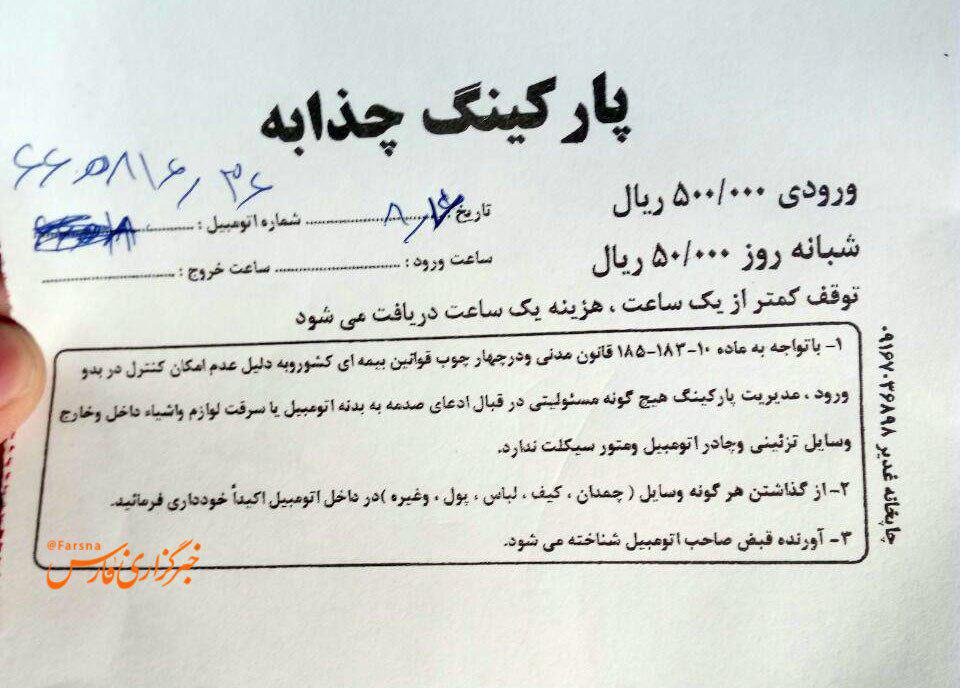 پارکینگ چذابه
ورودی ۵۰۰/۰۰۰ ریال
شبانه روز ۵۰/۰۰۰ ریال
تاریخ : شماره اتومبیل :
ساعت ورود : ساعت خروج :
توقف کمتر از یک ساعت ، هزینه یک ساعت دریافت می شود
۱- باتواجه به ماده ۱۰-۱۸۳-۱۸۵ قانون مدنی ودرچهار چوب قوانین بیمه ای کشوروبه دلیل عدم امکان کنترل در بدو
ورود ، مدیریت پارکینگ هیچ گونه مسئولیتی در قبال ادعای صدمه به بدنه اتومبیل یا سرقت لوازم واشیاء داخل وخارج
وسایل تزئینی وچادر اتومبیل ومتور سیکلت ندارد.
۲- از گذاشتن هر گونه وسایل ( چمدان ، کیف ، لباس ، پول ، وغیره )در داخل اتومبیل اکیداً خودداری فرمائید.
۳- آورنده قبض صاحب اتومبیل شناخته می شود.
چاپخانه غدیر ۰۹۱۶۷۰۳۶۸۹۸
@Farsna
خبرگزاری فارس